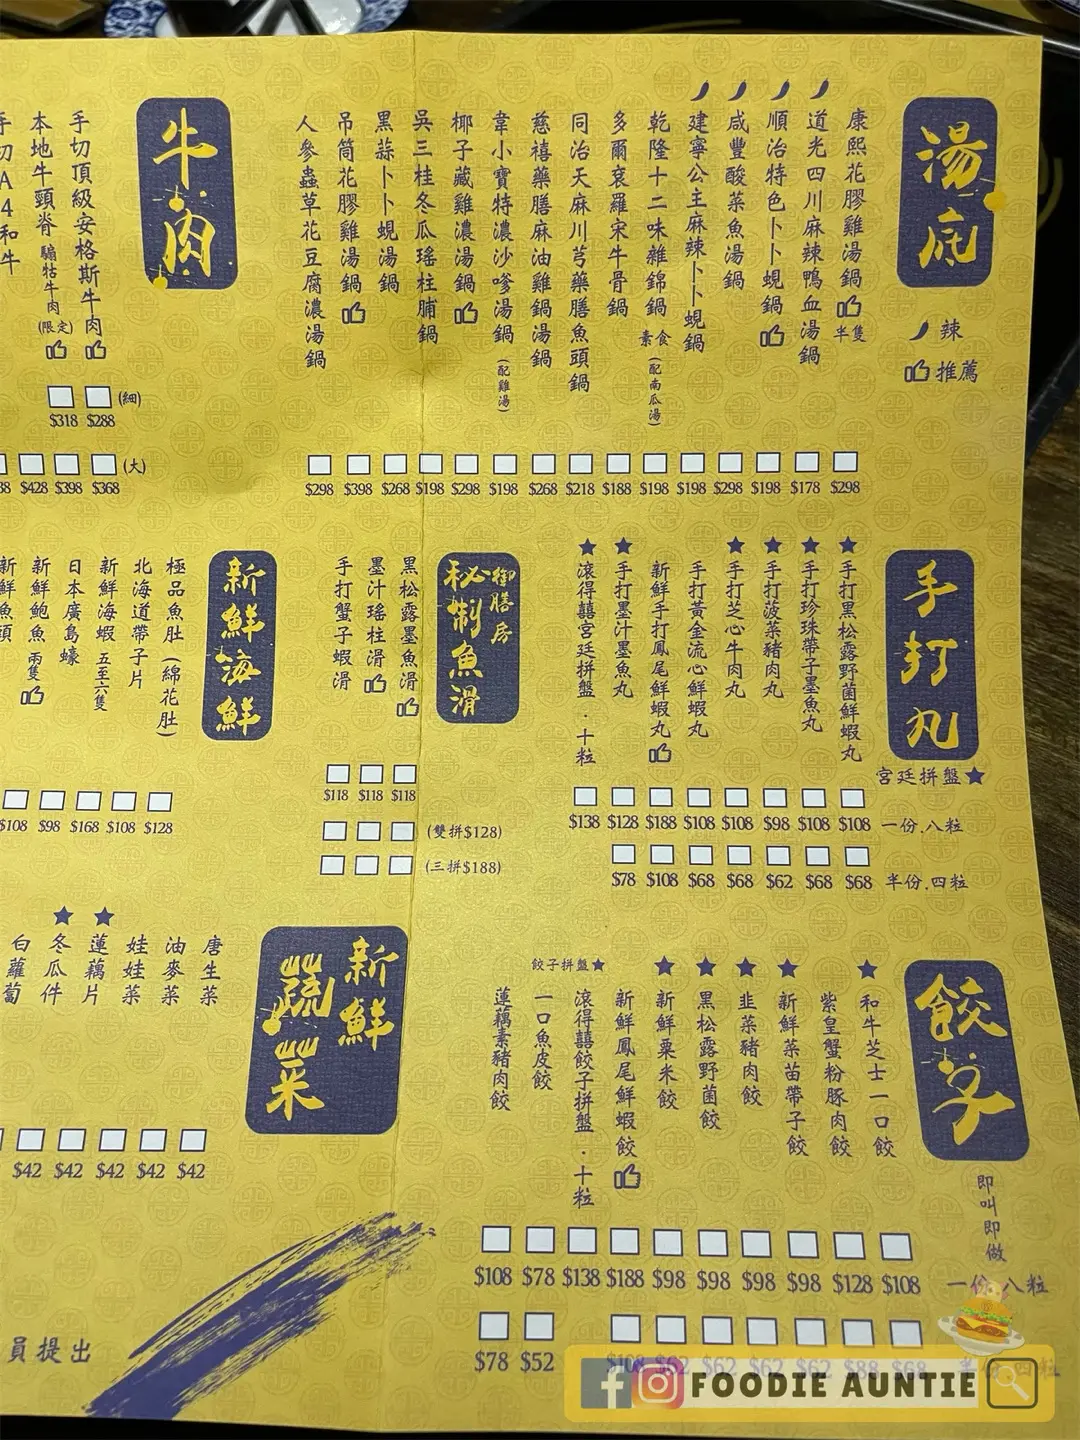 湯底
辣
推薦
康熙花膠雞湯鍋 半隻 $298
道光四川麻辣鴨血湯鍋 $178
順治特色卜卜蜆鍋 $198
咸豐酸菜魚湯鍋 $298
建寧公主麻辣卜卜蜆鍋 $198
乾隆十二味雜錦鍋 素食 (配南瓜湯) $198
多爾袞羅宋牛骨鍋 $188
同治天麻川芎藥膳魚頭鍋 $218
慈禧藥膳麻油雞鍋湯鍋 $268
韋小寶特濃沙嗲湯鍋 (配雞湯) $198
椰子藏雞濃湯鍋 $298
吳三桂冬瓜瑤柱脯鍋 $198
黑蒜卜卜蜆湯鍋 $268
吊筒花膠雞湯鍋 $398
人參蟲草花豆腐濃湯鍋 $298
牛肉
手切頂級安格斯牛肉
本地牛頸脊 騸牯牛肉 (限定)
手切A4和牛
(細) $288 $318
(大) $368 $398 $428
手打丸
宮廷拼盤★
★手打黑松露野菌鮮蝦丸
★手打珍珠帶子墨魚丸
★手打菠菜豬肉丸
★手打芝心牛肉丸
手打黃金流心鮮蝦丸
新鮮手打鳳尾鮮蝦丸
★手打墨汁墨魚丸
★滾得囍宮廷拼盤．十粒
一份.八粒 $108 $108 $98 $108 $108 $188 $128 $138
半份.四粒 $68 $68 $62 $68 $68 $108 $78
御膳房
秘制魚滑
黑松露墨魚滑
墨汁瑤柱滑
手打蟹子蝦滑
$118 $118 $118
(雙拼$128)
(三拼$188)
新鮮海鮮
極品魚肚 (綿花肚) $128
北海道帶子片 $108
新鮮海蝦 五至六隻 $168
日本廣島蠔 $98
新鮮鮑魚 兩隻 $108
新鮮魚頭
餃子
即叫即做
★和牛芝士一口餃
紫皇蟹粉豚肉餃
★新鮮菜苗帶子餃
★韭菜豬肉餃
★黑松露野菌餃
★新鮮粟米餃
新鮮鳳尾鮮蝦餃
餃子拼盤★
滾得囍餃子拼盤．十粒
一口魚皮餃
蓮藕素豬肉餃
一份.八粒 $108 $128 $98 $98 $98 $98 $188 $138 $78 $108
半份.四粒 $68 $88 $62 $62 $62 $62 $108 $52 $78
新鮮蔬菜
唐生菜 $42
油麥菜 $42
娃娃菜 $42
★蓮藕片 $42
★冬瓜件 $42
白蘿蔔
員提出
FOODIE AUNTIE